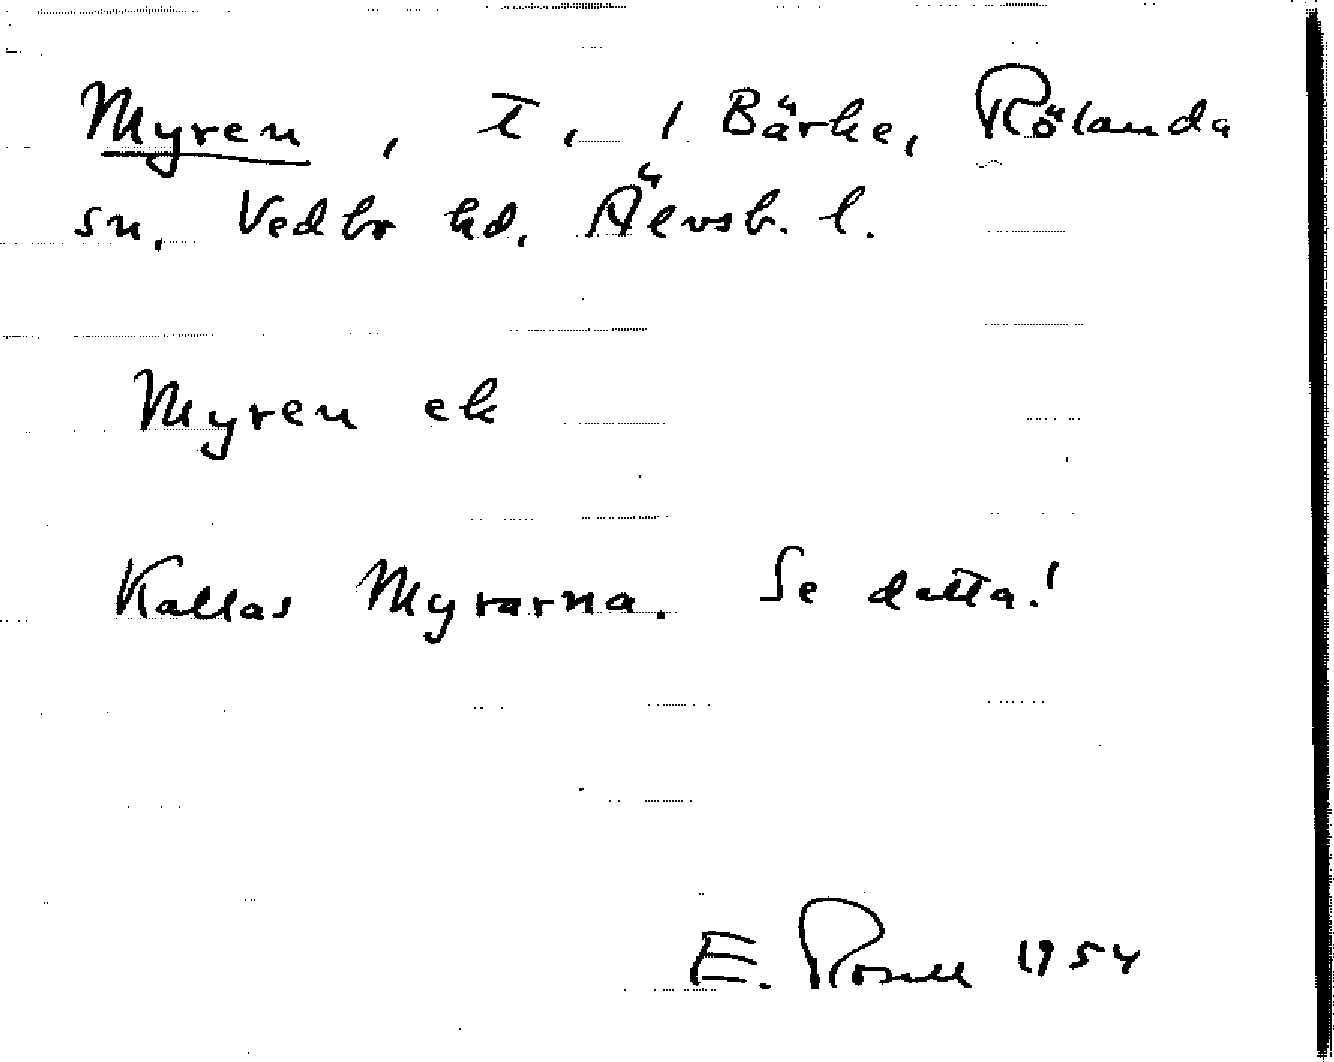 Myren, T, 1 Bärke, Rölanda
sn. Vedbo hd. Älvsb. l.
Myren ek
Kallas Myrarna. Se detta!
E. Rosell 1954